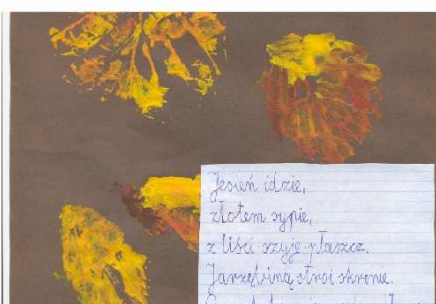 Jesień idzie,
złotem sypie,
z liści szyje płaszcz.
Jarzębiną stroi skronie.